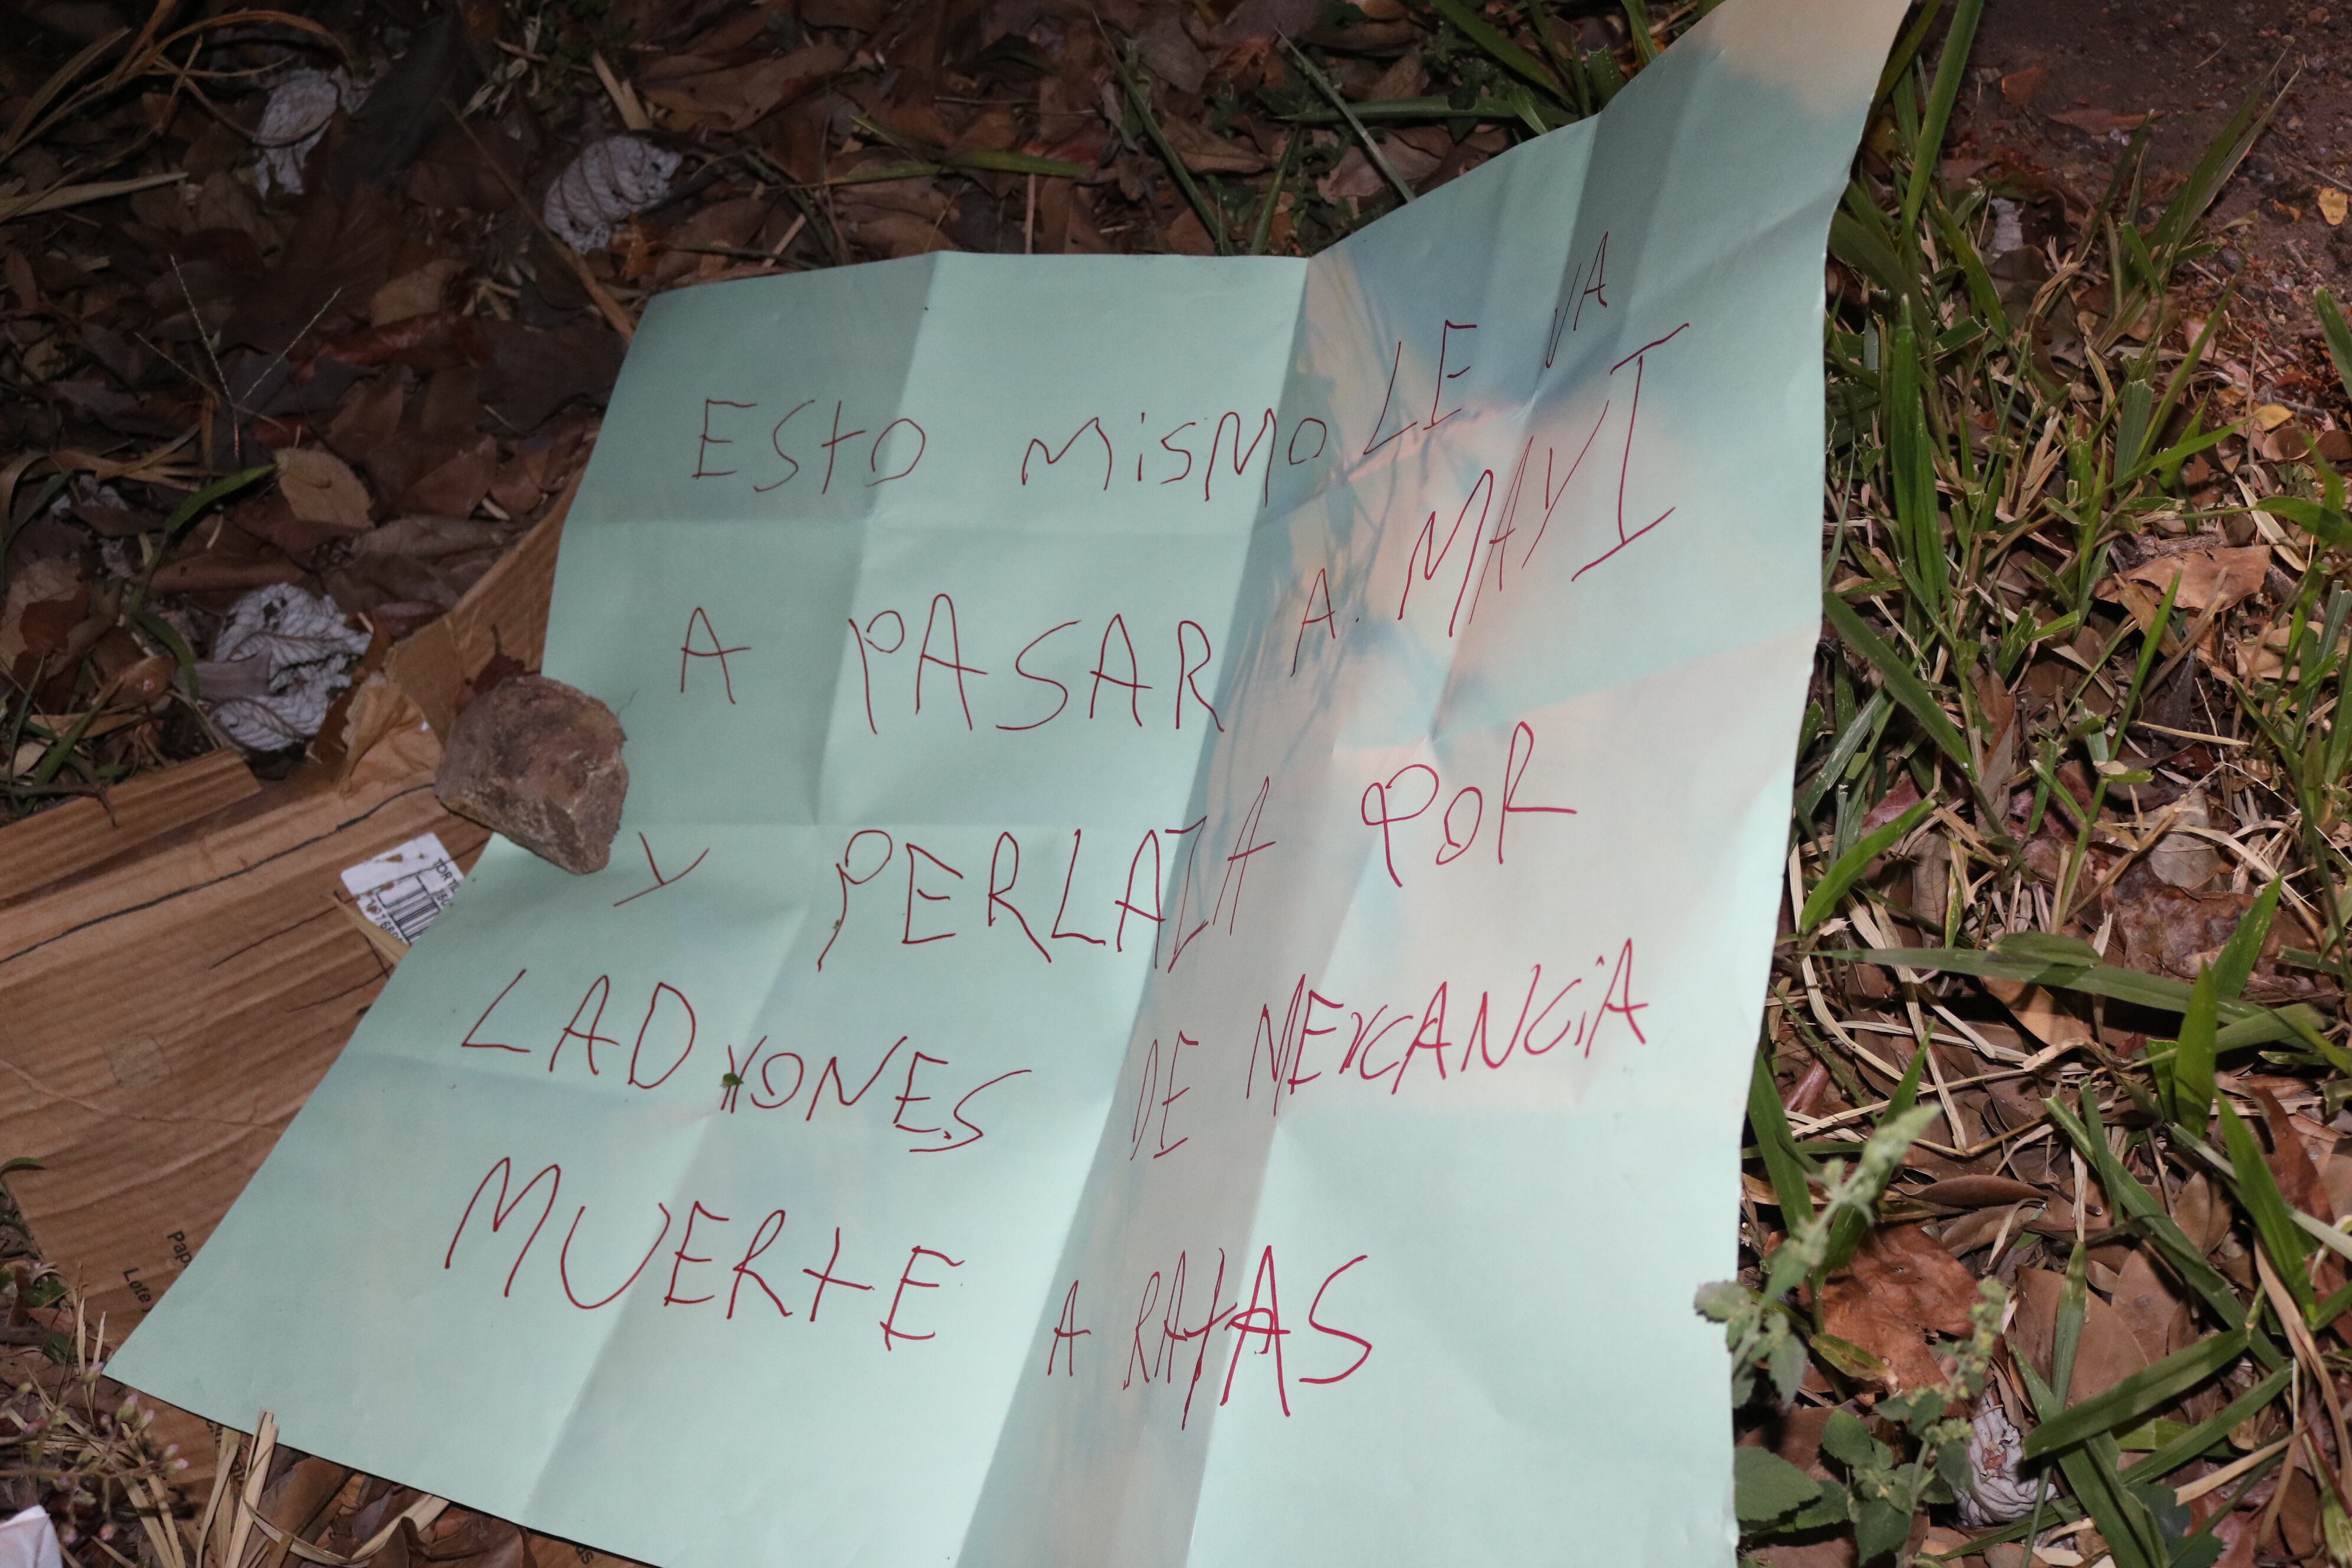 ESTO MISMO LE VA
A PASAR A. MAYI
Y PERLAZA POR
LADRONES DE MERCANCIA
MUERTE A RATAS
TORTI
Pap
Lote